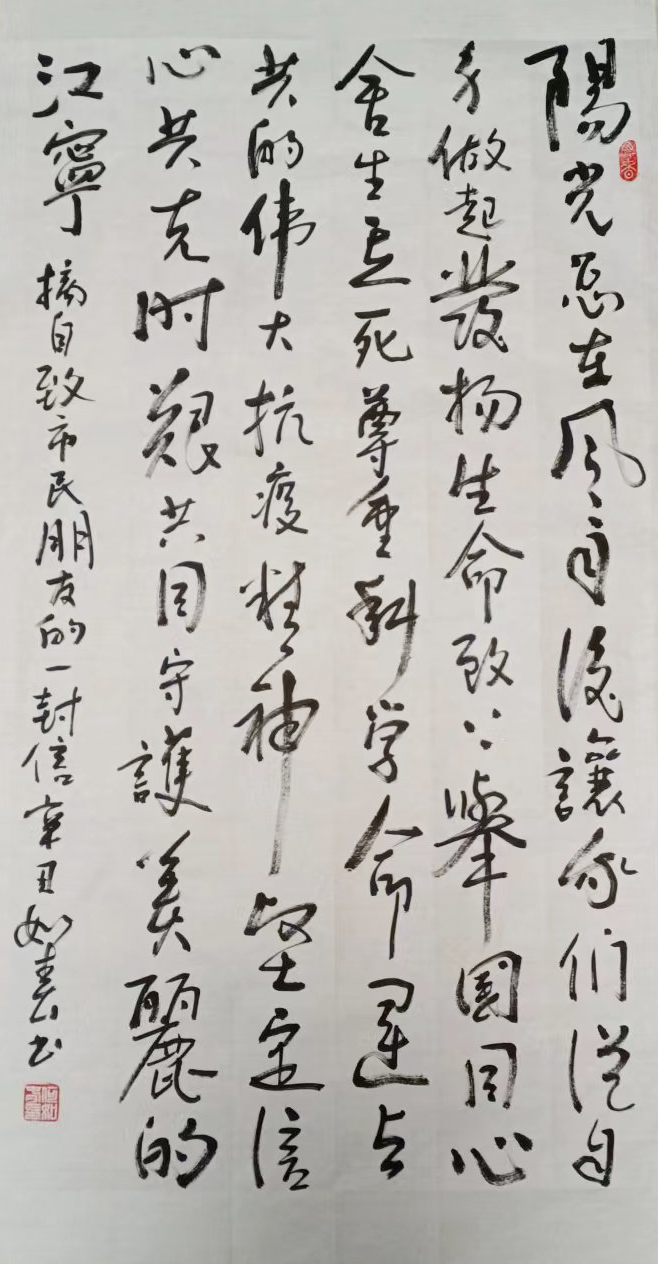 陽光总在风雨後讓我们從自
身做起發扬生命致上舉國同心
舍生忘死尊重科学命運与
共的伟大抗疫精神坚定信
心共克时艱共同守護美麗的
江寧 摘自致市民朋友的一封信辛丑如春书